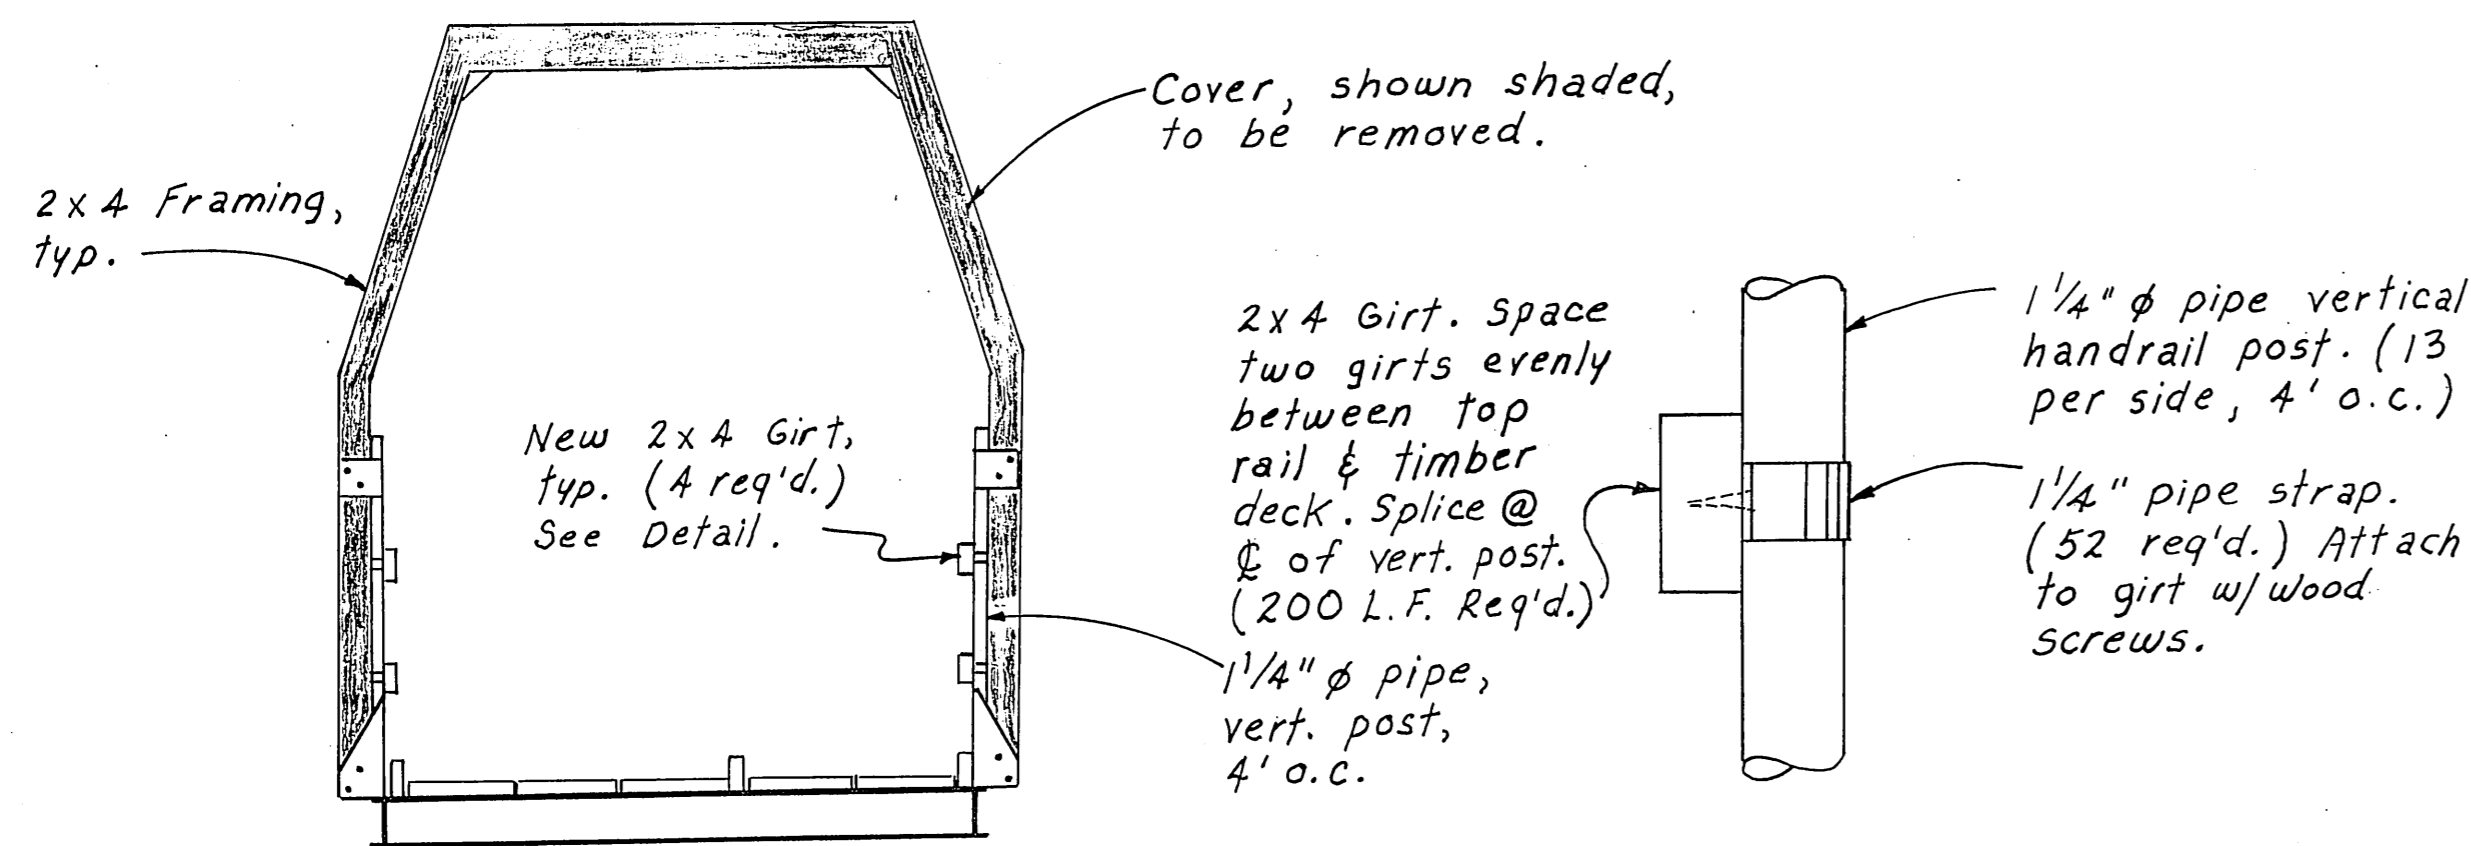 Cover, shown shaded,
to be removed.
2 x 4 Framing,
typ.
New 2 x 4 Girt,
typ. (4 req'd.)
See Detail.
2 x 4 Girt. Space
two girts evenly
between top
rail & timber
deck. Splice @
℄ of vert. post.
(200 L.F. Req'd.)
1 1/4" ϕ pipe,
vert. post,
4' o.c.
1 1/4" ϕ pipe vertical
handrail post. (13
per side, 4' o.c.)
1 1/4" pipe strap.
(52 req'd.) Attach
to girt w/ wood
screws.